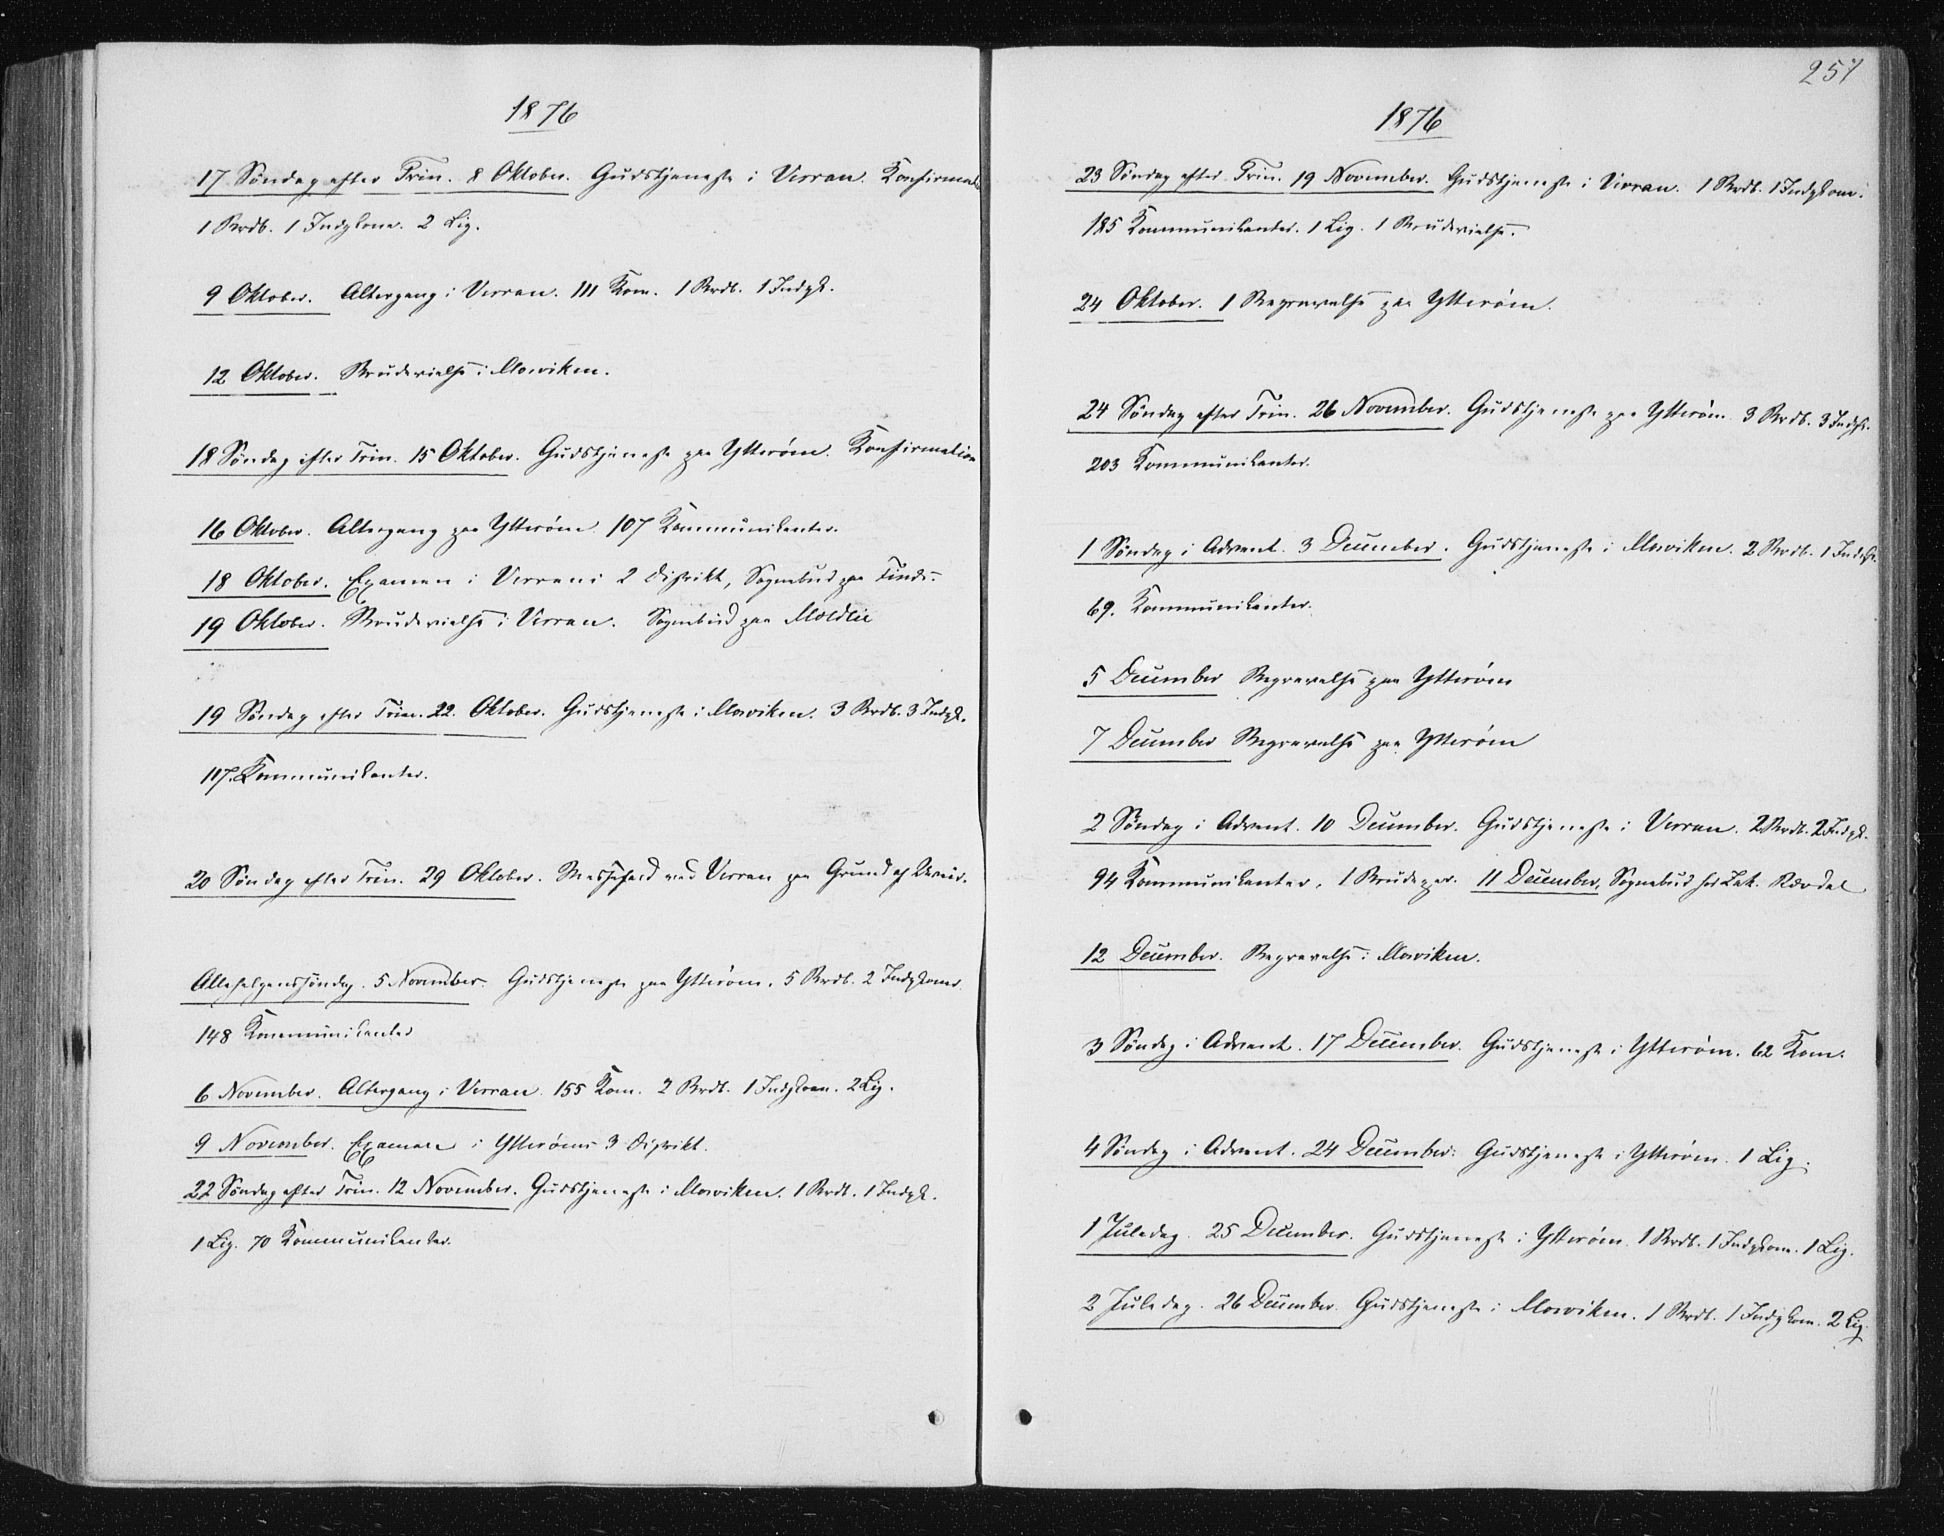 1876
17 Søndag efter Trin. 8 Oktober. Gudstjeneste i Verran. Konfirmat
1 Brdb. 1 Indgkone. 2 Lig.
9 Oktober. Altergang i Verran. 111 Kom. 1 Brdb. 1 Indgk.
12 Oktober. Brudevielse i Mosviken.
18 Søndag efter Trin. 15 Oktober. Gudstjeneste paa Ytterøen. Konfirmation
16 Oktober. Altergang paa Ytterøen 107 Kommunikanter.
18 Oktober. Examen i Verrans 2 Distrikt, Sognebud paa
19 Oktober. Brudevielse i Verran. Sognebud paa Moldlie
19 Søndag efter Trin. 22. Oktober. Gudstjeneste i Mosviken. 3 Brdb. 3 Indgk.
117. Kommunikanter.
20 Søndag efter Trin. 29 Oktober. Messefald ved Verran paa Grund af Uveir.
Allehelgenssøndag. 5 November. Gudstjeneste paa Ytterøen. 5 Brdb. 2 Indgkoner
148 Kommunikanter
6 November. Altergang i Verran 155 Kom. 2 Brdb. 1 Indgkone. 2 Lig.
9 November. Examen i Ytterøens 3 Distrikt.
22 Søndag efter Trin. 12 November. Gudstjeneste i Mosviken. 1 Brdb. 1 Indgk.
1 Lig. 70 Kommunikanter.
257
1876
23 Søndag efter Trin. 19 November. Gudstjeneste i Verran. 1 Brdb. 1 Indgkone.
185 Kommunikanter. 1 Lig. 1 Brudevielse.
24 Oktober. 1 Begravelse paa Ytterøen.
24 Søndag efter Trin. 26 November. Gudstjeneste paa Ytterøen 3 Brdb. 3 Indgk.
203 Kommunikanter.
1 Søndag i Advent. 3 December. Gudstjeneste i Mosviken. 2 Brdb. 1 Indgk.
69. Kommunikanter.
5 December Begravelse paa Ytterøen
7 December Begravelse paa Ytterøen
2 Søndag i Advent. 10 December. Gudstjeneste i Verran. 2 Brdb. 2 Indgk.
94 Kommunikanter. 1 Brudepar. 11 December, Sognebud hos Zak. Rævdal
12 December. Begravelse i Mosviken.
3 Søndag i Advent. 17 December. Gudstjeneste i Ytterøen. 62 Kom.
4 Søndag i Advent. 24 December: Gudstjeneste i Ytterøen. 1 Lig.
1 Juledag. 25 December. Gudstjeneste i Ytterøen. 1 Brdb. 1 Indgkone. 1 Lig.
2 Juledag. 26 December. Gudstjeneste i Mosviken. 1 Brdb. 1 Indgkone. 2 Lig.